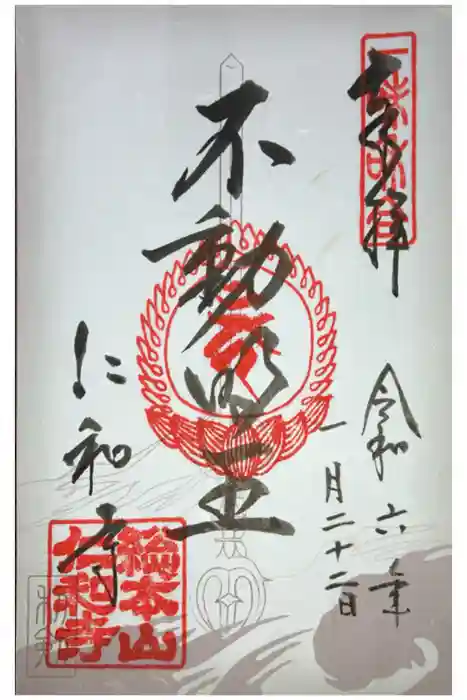 奉拝
令和六年
一月二十二日
不動明王
仁和寺
総本山
仁和寺